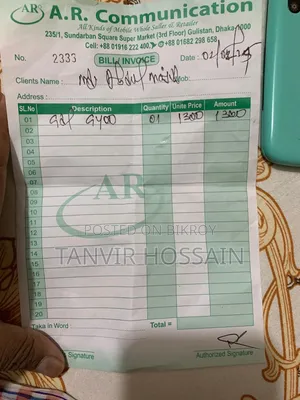 AR A.R. Communication
All Kinds of Mobile Whole Saller & Retailer
235/1, Sundarban Square Super Market (3rd Floor) Gulistan, Dhaka-1000
Cell: +88 01916 222 400, +88 01682 298 658
No. 2333 BILL/INVOICE Date :
Clients Name : Md Abdul
Address :
SL.No Description Quantity Unite Price Amount
01 01 1300 1300
02
03
04
05
06
07
08
09
10
11
12
13
14
15
16
17
18
19
20
AR
POSTED ON BIKROY
TANVIR HOSSAIN
Taka in Word Total =
Signature Authorized Signature